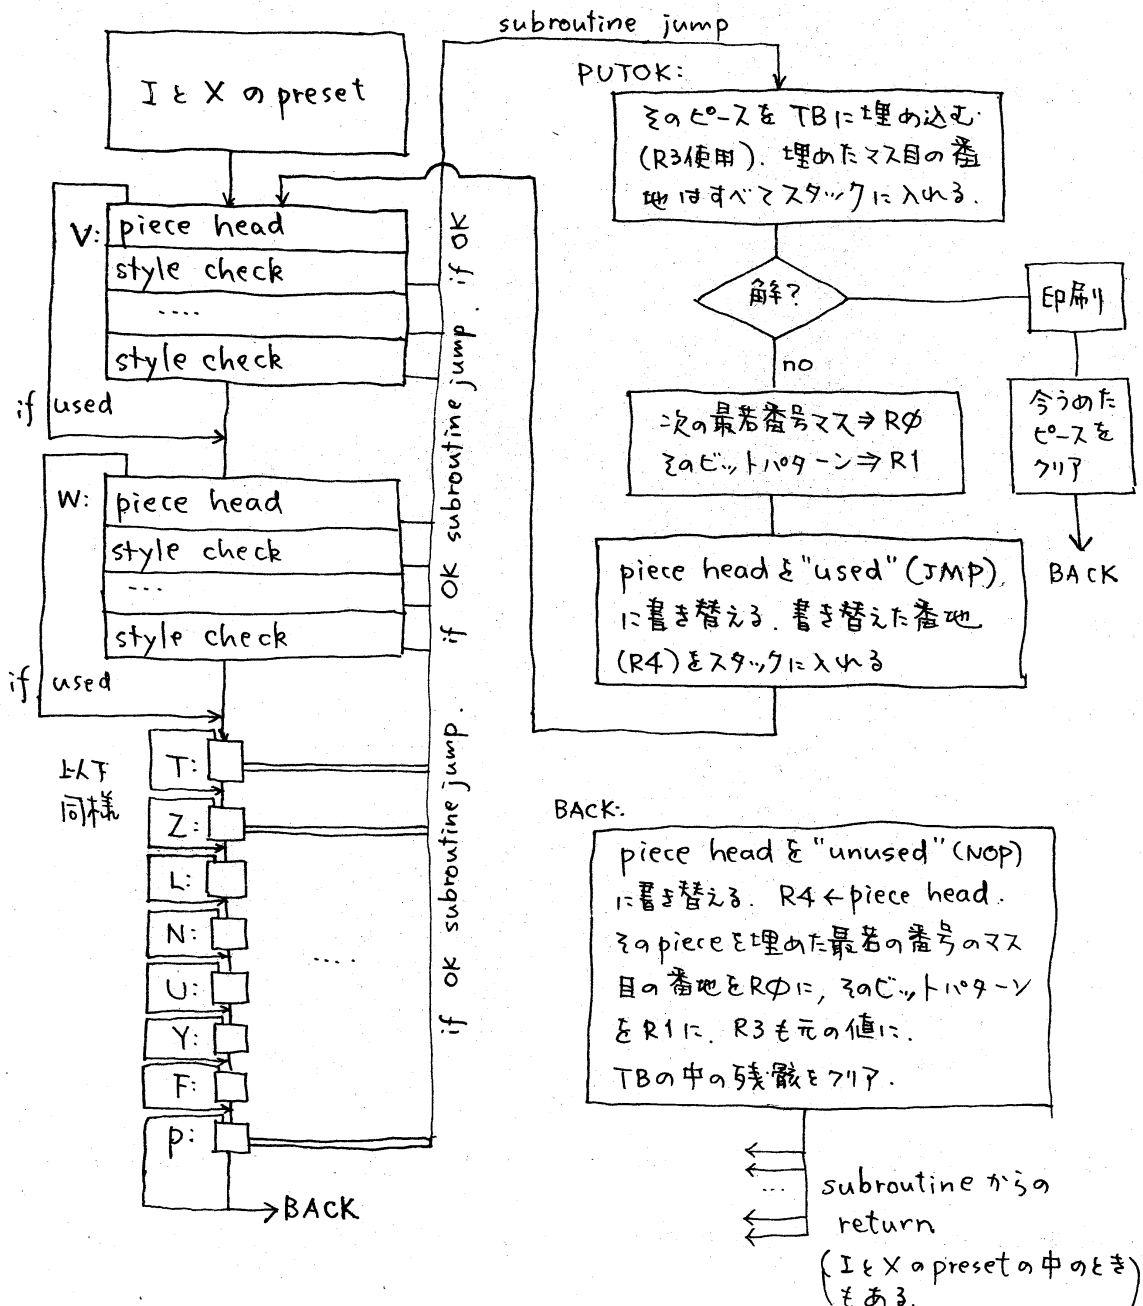 subroutine jump
IとXのpreset
V:
piece head
style check
....
style check
if used
W:
piece head
style check
...
style check
if used
以下
同様
T:
Z:
L:
N:
U:
Y:
F:
P:
....
BACK
if OK subroutine jump.
if OK subroutine jump. if OK
PUTOK:
そのピースを TBに埋め込む
(R3使用). 埋めたマス目の番
地はすべてスタックに入れる.
解?
no
印刷
今うめた
ピースを
クリア
BACK
次の最若番号マス⇒RØ
そのビットパターン⇒R1
piece headを"used"(JMP)
に書き替える. 書き替えた番地
(R4)をスタックに入れる
BACK:
piece headを"unused"(NOP)
に書き替える. R4←piece head.
そのpieceを埋めた最若の番号のマス
目の番地をRØに, そのビットパターン
をR1に. R3も元の値に.
TBの中の残骸をクリア.
...
subroutineからの
return
(IとXのpresetの中のとき)
もある.